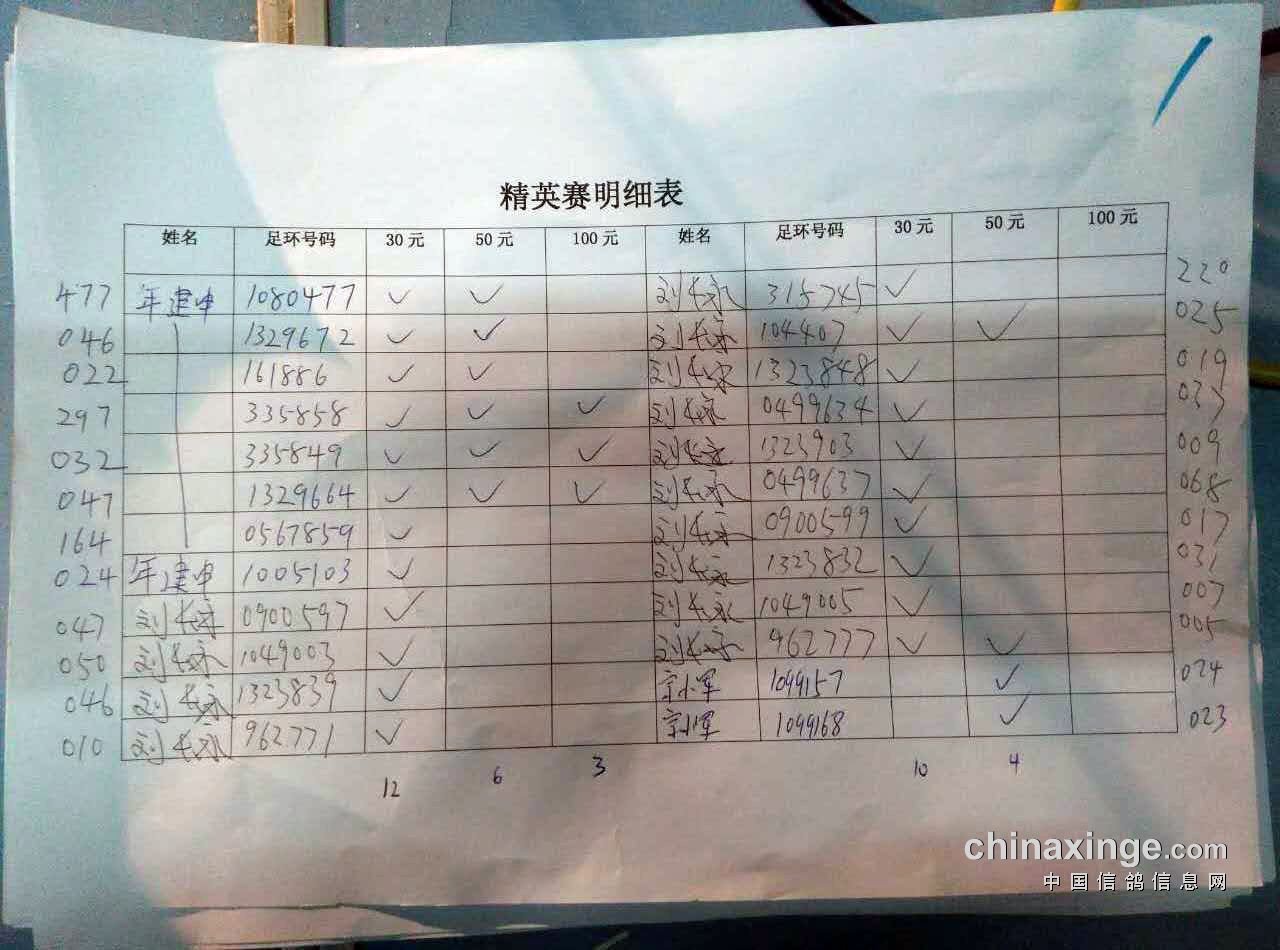 精英赛明细表
姓名 足环号码 30元 50元 100元 姓名 足环号码 30元 50元 100元
477 年建中 1080477 ✓ ✓ 刘长永 315745 ✓ 220
046 1329672 ✓ ✓ 刘长永 104407 ✓ ✓ 025
022 161886 ✓ ✓ 刘长永 1323848 ✓ 019
297 335858 ✓ ✓ ✓ 刘长永 0499634 ✓
032 335849 ✓ ✓ ✓ 刘长永 1323903 ✓ 009
047 1329664 ✓ ✓ ✓ 刘长永 0499637 ✓ 068
164 0567859 ✓ 刘长永 0900599 ✓ 017
024 年建中 1005103 ✓ 刘长永 1323832 ✓ 031
047 刘长永 0900597 ✓ 刘长永 1049005 ✓ 007
050 刘长永 1049003 ✓ 刘长永 962777 ✓ ✓ 005
046 刘长永 1323839 ✓ 小军 1099157 ✓ 024
010 刘长永 962771 ✓ 小军 1099168 ✓ 023
12 6 3 10 4
chinaxinge.com
中国信鸽信息网